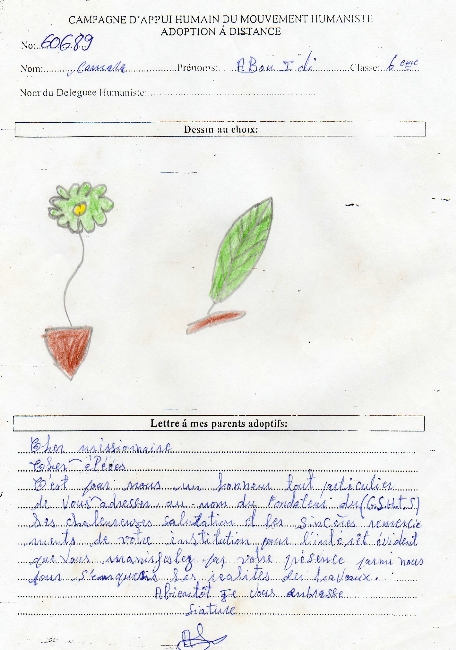 CAMPAGNE D'APPUI HUMAIN DU MOUVEMENT HUMANISTE
ADOPTION Á DISTANCE
No: 60689
Nom: Camara Prénoms: ABou I di Classe: 6 eme
Nom du Délégué Humaniste:
Dessin au choix:
Lettre á mes parents adoptifs:
Cher missionnaire
Cher
C'est par nous un honneur tout particulier
de vous adresser au nom du Fondateur du (G.S.H.T.S)
Ses chaleureuses salutation et les Sinceres remercie
ments de votre institution pour l'interêt évident
que vous manifestez par votre présence parmi nous
pour les realités des travaux.
Abientôt je vous embrasse
Siature